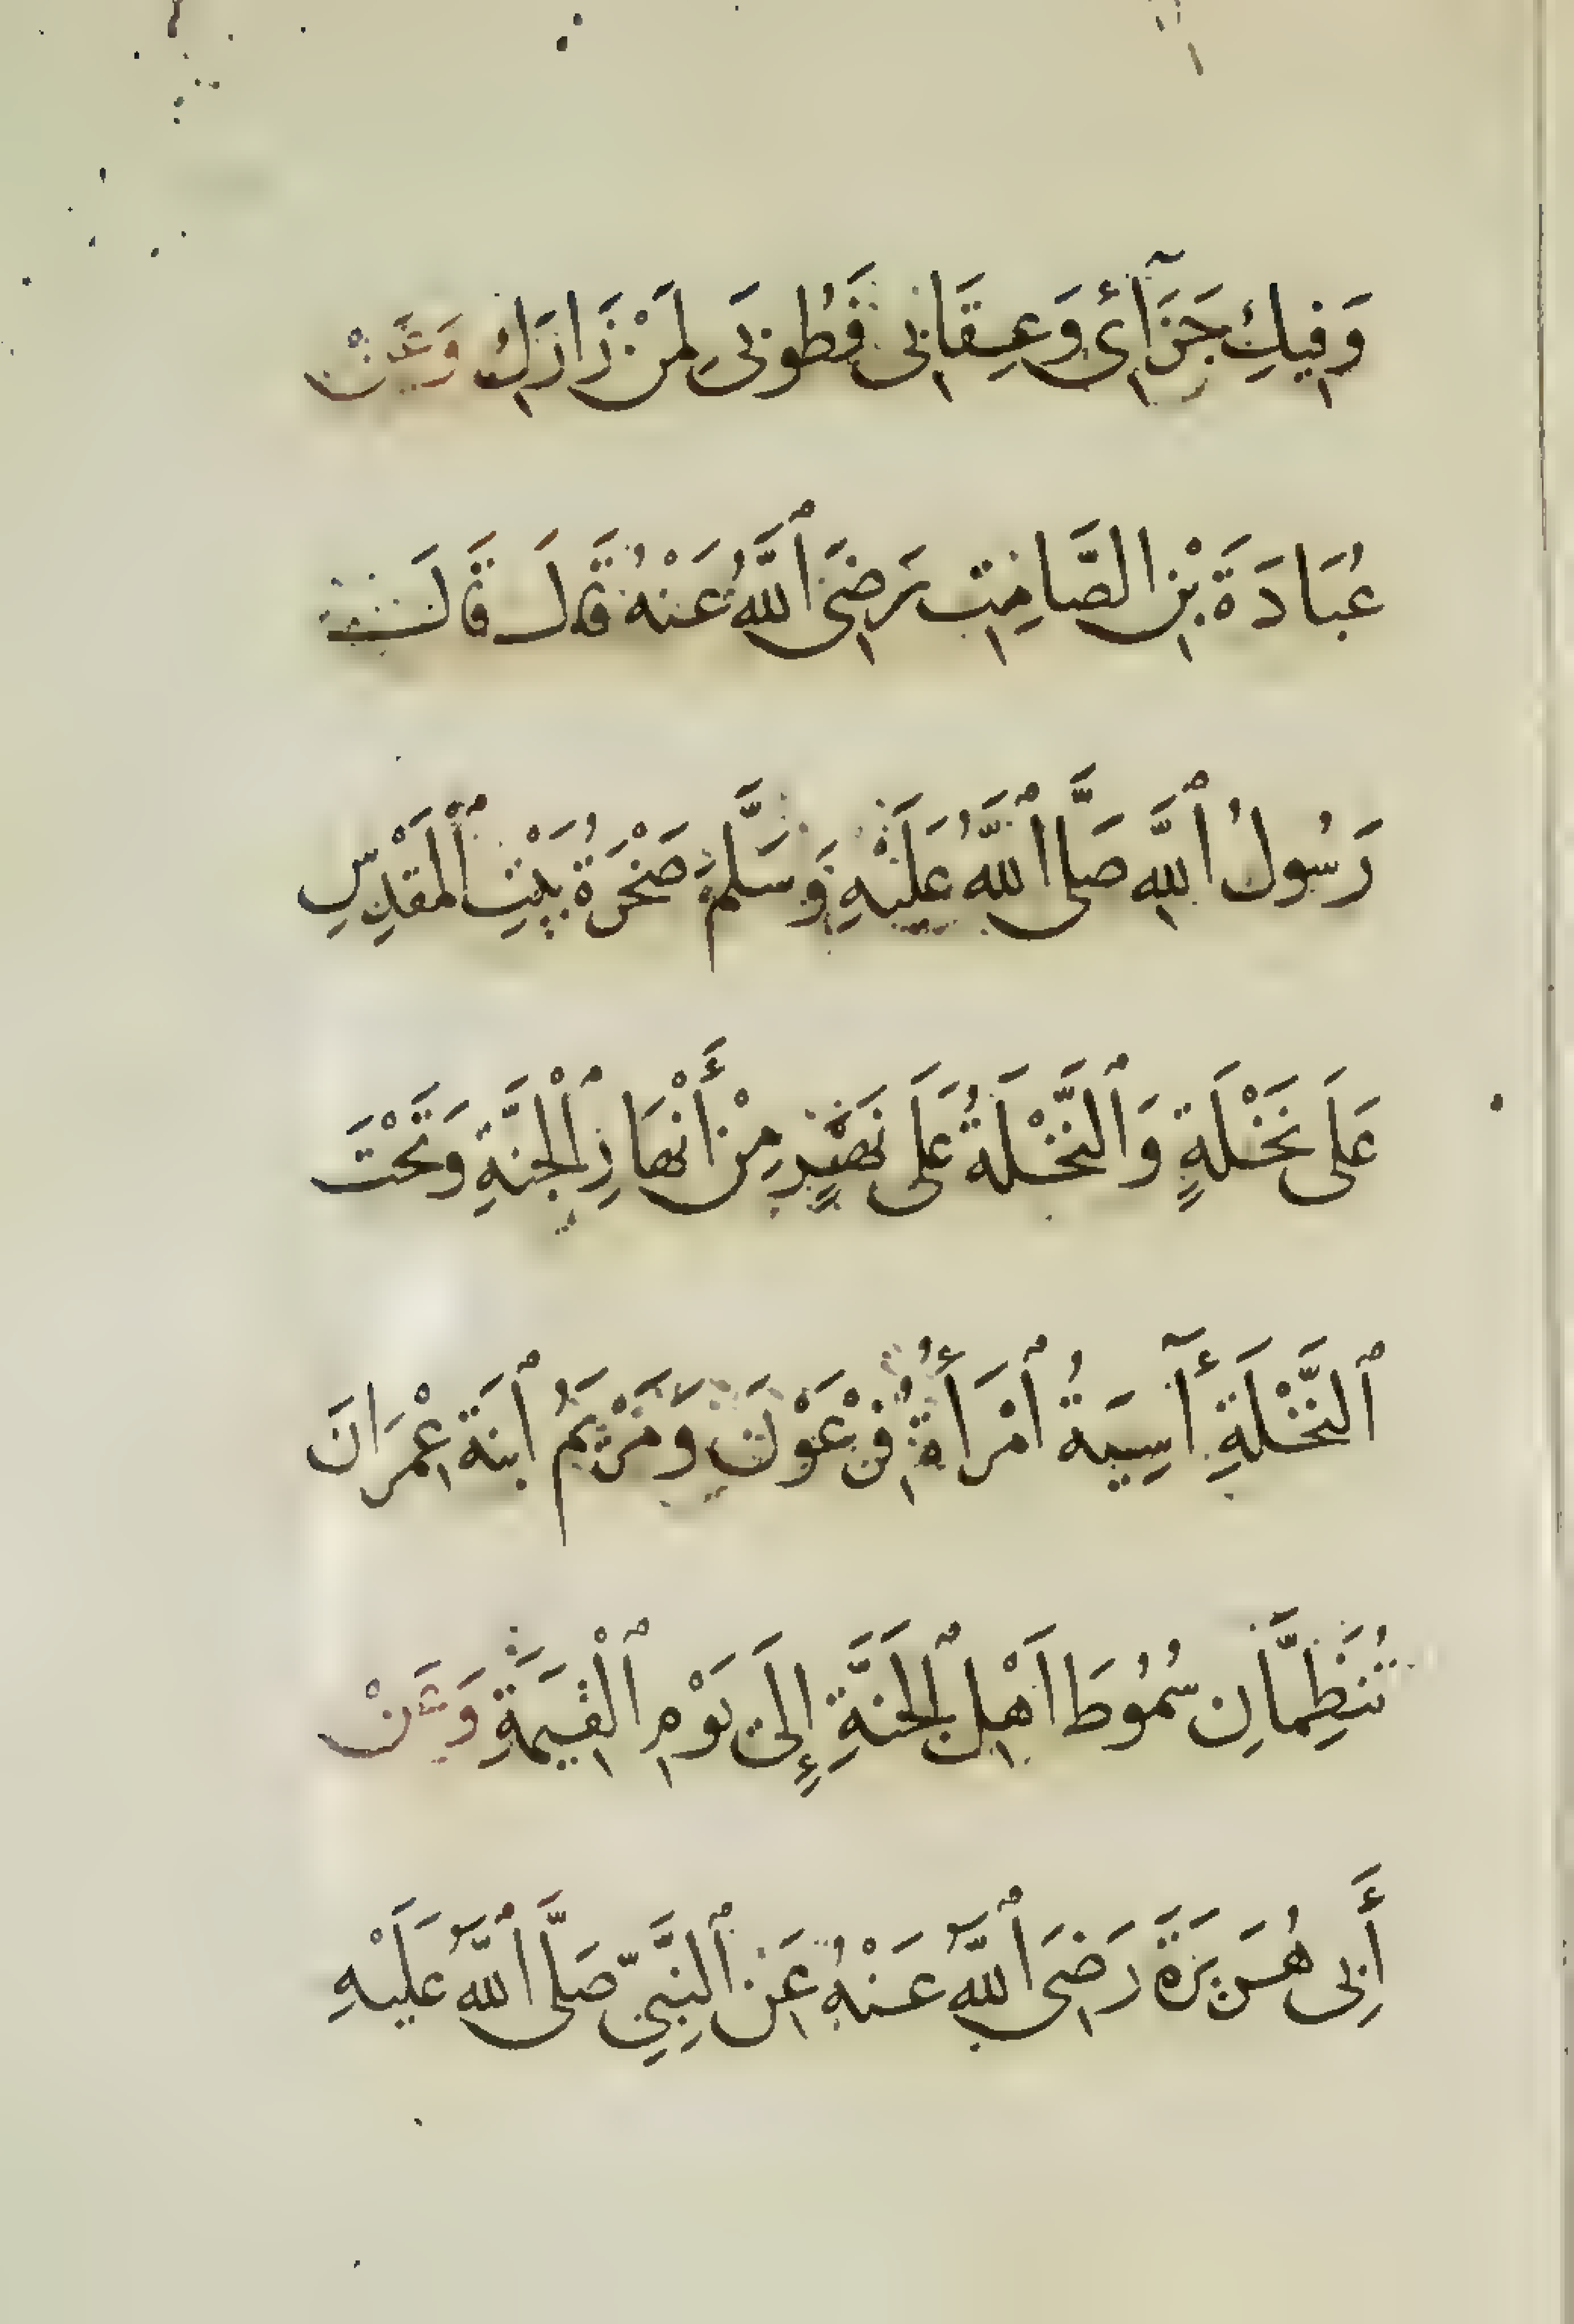 وَفِيكِ جَزَآئِى وَعِقَابِى فَطُوبَى لِمَنْ زَارَكِ وَعَنْ
عُبَادَةَ بْنِ الصَّامِتِ رَضِىَ ٱللَّهُ عَنْهُ قَالَ قَالَ
رَسُولُ ٱللَّهِ صَلَّى ٱللَّهُ عَلَيْهِ وَسَلَّمَ صَخْرَةُ بَيْتِ ٱلْمَقْدِسِ
عَلَى نَخْلَةٍ وَٱلنَّخْلَةُ عَلَى نَهَرٍ مِنْ أَنْهَارِ ٱلْجَنَّةِ وَتَحْتَ
ٱلنَّخْلَةِ أٓسِيَةُ ٱمْرَأَةُ فِرْعَوْنَ وَمَرْيَمُ ٱبْنَةُ عِمْرَانَ
تُنَظِّمَانِ سُمُوطَ اَهْلِ ٱلْجَنَّةِ إِلَى يَوْمِ ٱلْقِيَمَةِ وَعَنْ
أَبِى هُرَيْرَةَ رَضِىَ ٱللَّهُ عَنْهُ عَنِ ٱلنَّبِيِّ صَلَّى ٱللَّهُ عَلَيْهِ